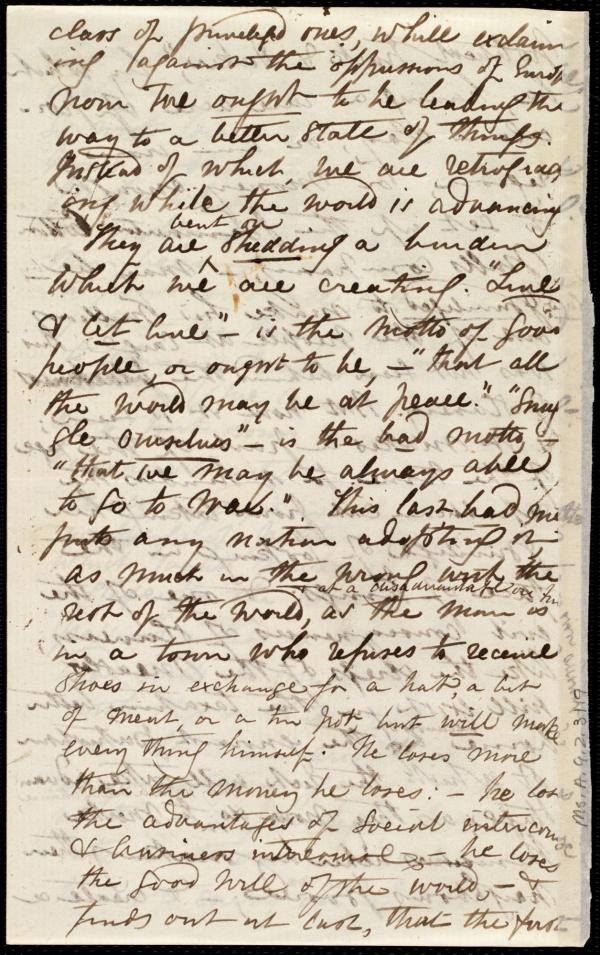 class of privileged ones, while exclaim
ing against the oppressions of Europe
now we ought to be leading the
way to a better state of things.
Instead of which, we are retrograd
ing while the world is advancing
bent on
They are shedding a burden
which we are creating. "Live
& let live" – is the motto of good
people, or ought to be, – "that all
the world may be at peace." "Smug-
gle ourselves" – is the bad motto, –
"that we may be always able
to go to war." This last bad
puts any nation adopting it
as much in the wrong with the
& at a disadvantage
rest of the world, as the man is
in a town who refuses to receive
shoes in exchange for a hat, a bit
of meat, or a tin pot, but will make
every thing himself. He loses more
than the money he loses: – he loses
the advantages of social intercourse
& business intercourse – he loses
the good will of the world, – &
finds out at last, that the first
Ms. A. 9. 2. 3/19